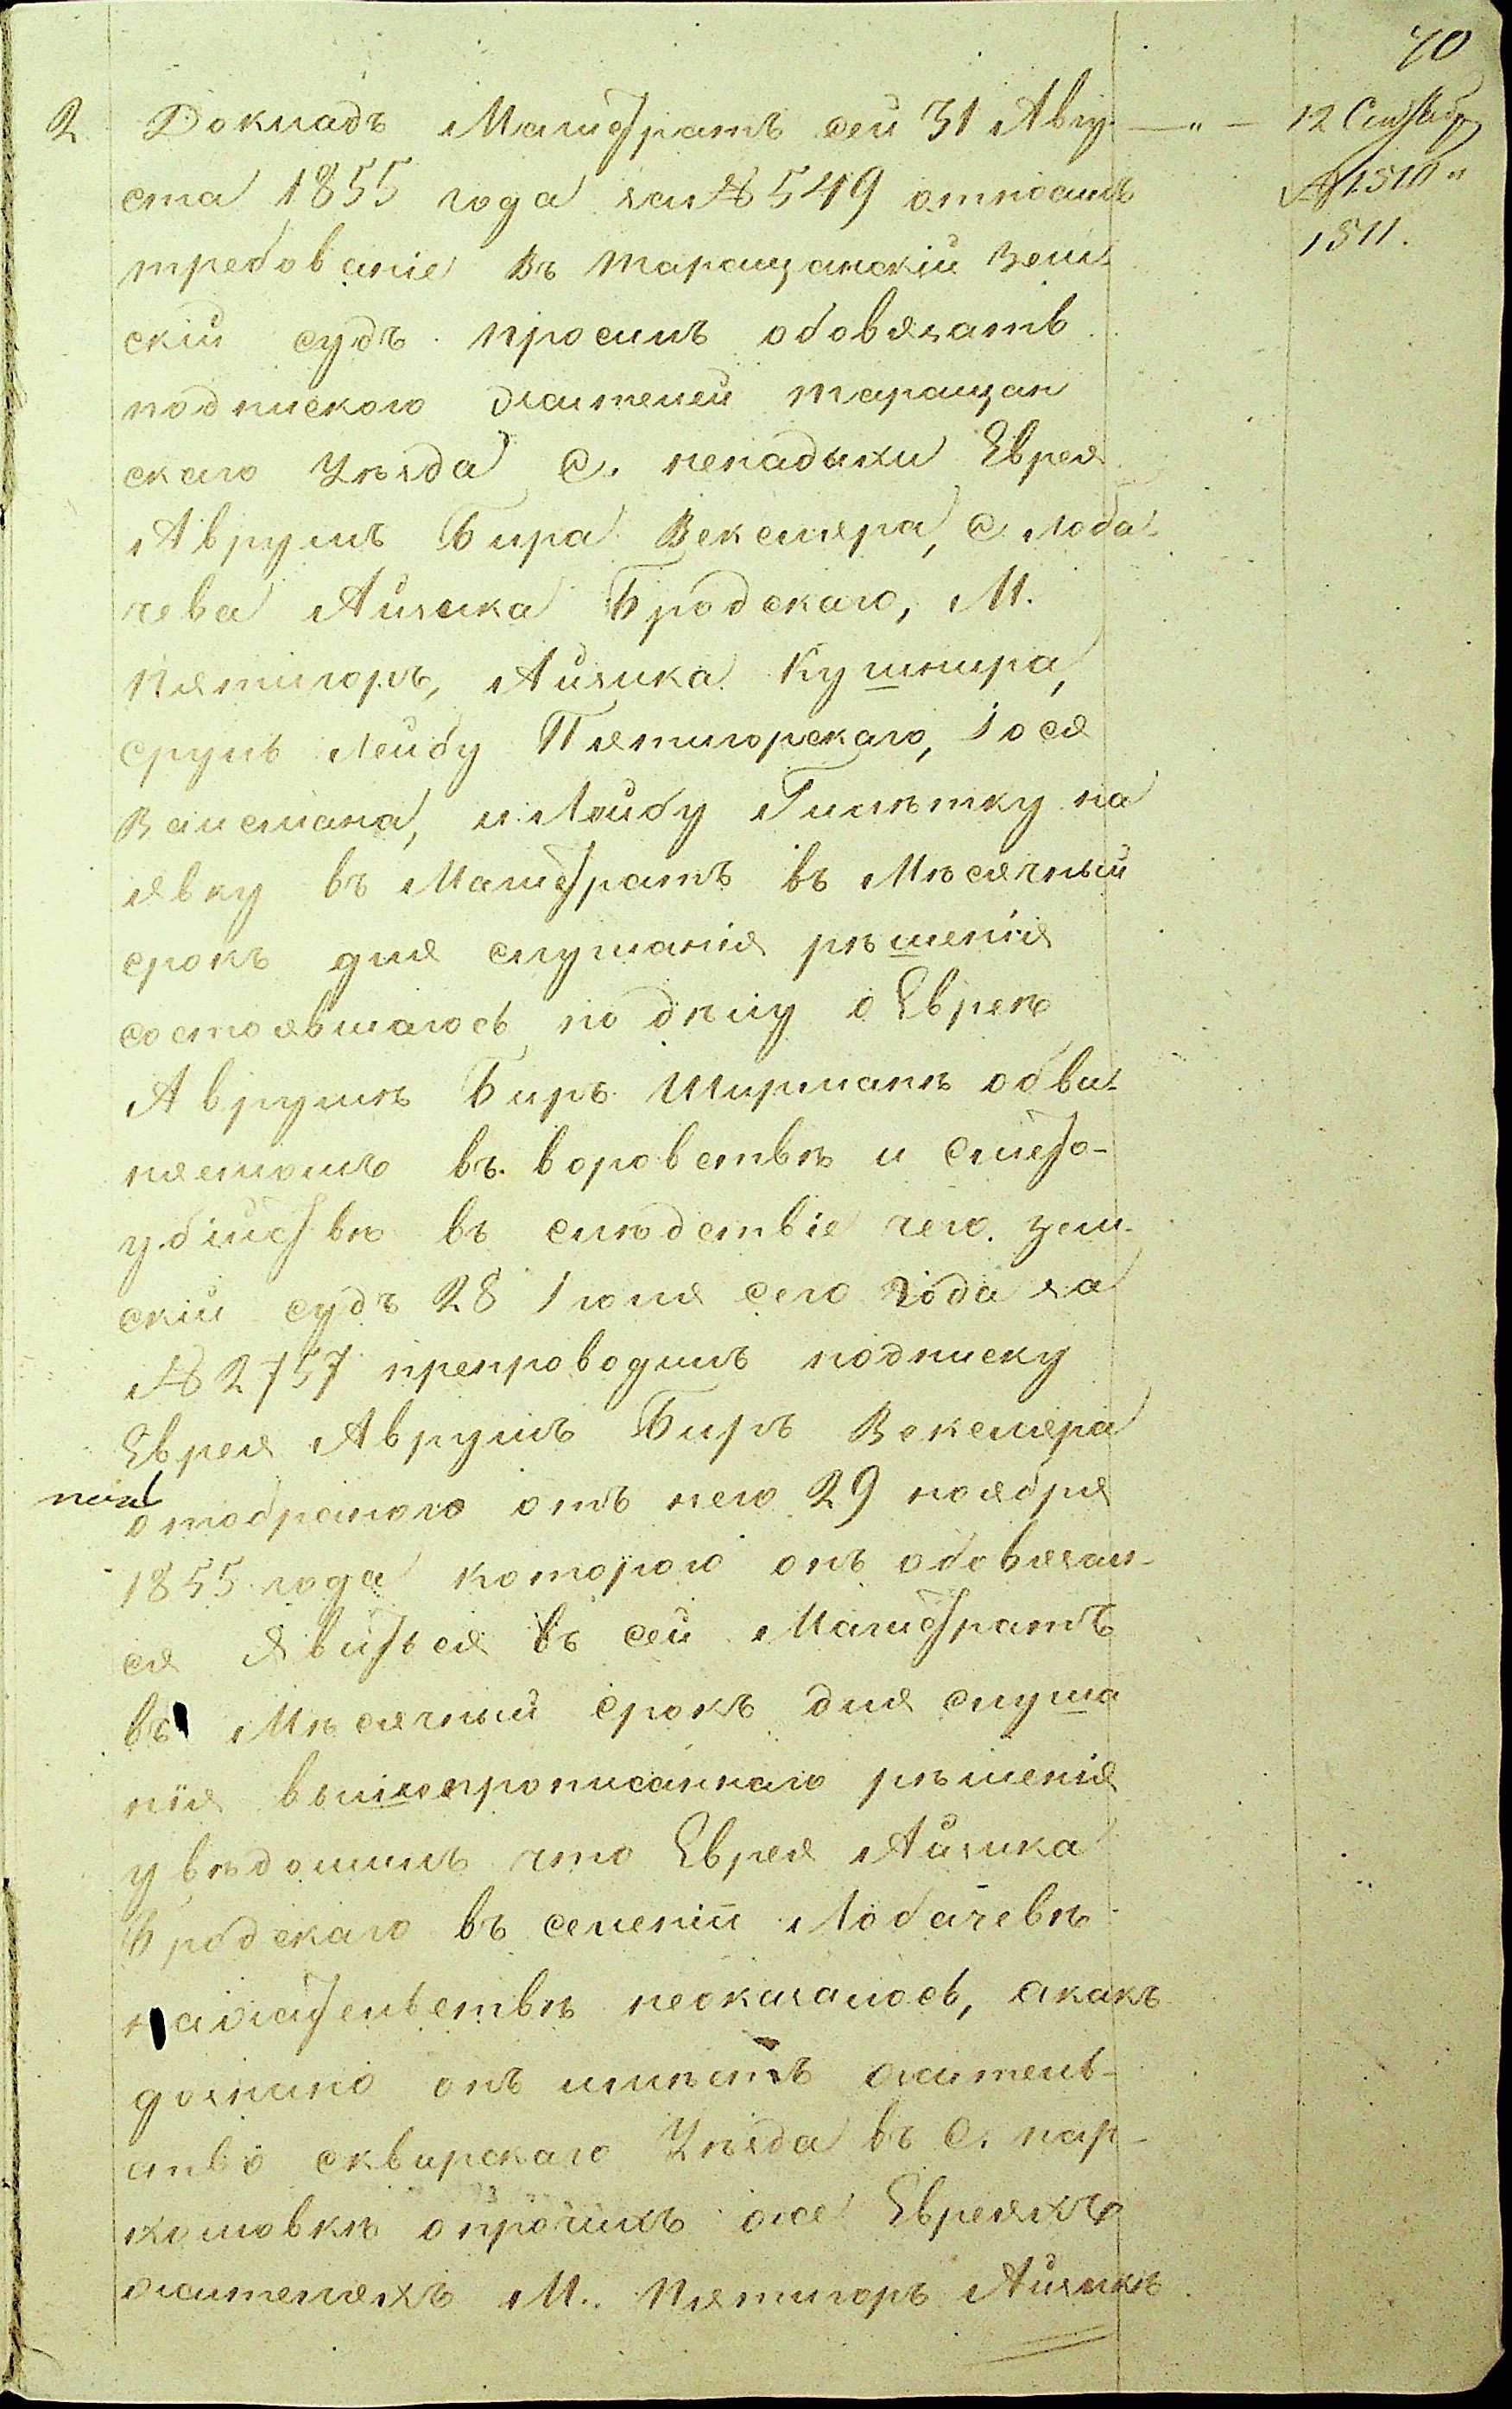 70
2 Докладъ Магистратъ сей 31 Авгу- — „ — 12 Сентября
ста 1855 года за № 549 относит. № 1510 и
требованіе въ таращанскій Зем- 1511.
скій судъ просилъ обовязать
подпискою жителей таращан
скаго Уѣзда с. ненадыхи Еврея
Аврумъ Бира Векслера, с. Лоба-
чева Айзика Бродскаго, М.
Пятигоръ, Айзика Кушнира,
Сруль Лейбу Пятигорскаго, Іося
Вайсмана, и Лейбу Гилѣтку на
явку въ Магистратъ въ Мѣсячный
срокъ для слушанія рѣшенія
состоявшагось по дѣлу о Евреѣ
Аврумѣ Биръ Ширманѣ обви-
няемомъ въ воровствѣ и смерто-
убійствѣ въ слѣдствіе чего зем-
скій судъ 28 Іюля сего года за
№ 2757 препроводилъ подписку
Еврея Аврумъ Биръ Векслера
отобраною отъ него 29 ноября
1855 года которою онъ обовязал-
ся Явиться въ сей Магистратъ
въ Мѣсячный срокъ для слуша
нія вышепрописаннаго рѣшенія
увѣдомилъ что Еврея Айзика
Бродскаго въ селеніи Лобачевѣ
нажительствѣ неоказалось, а какъ
дознано онъ имѣетъ житель-
ство сквирскаго Уѣзда въ с. пар-
хомовкѣ о прочихъ же Евреяхъ
жителяхъ М. Пятигоръ Айзикѣ